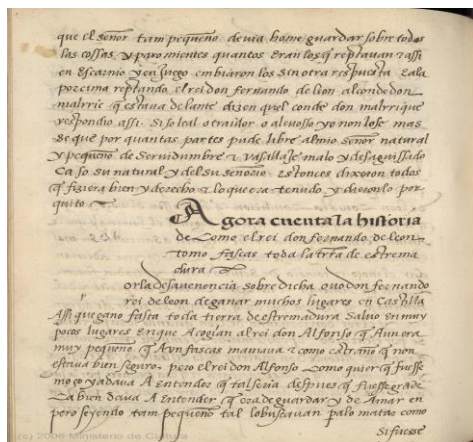 que el señor tam pequeño devia home guardar sobre todas
las cossas y paro mientes quantos eran los q reptavan & assi
en Escarnio y en juego embiaron los sin otra respuesta & a la
por cima reptando el rei don fernando de leon al conde don
malrric q estava delante dizen quel conde don malrrique
respondio assi. Si so leal o traidor o alevosso yo non lo se mas
se que por quantas partes pude libre al mio señor natural
y pequeño de servidumbre & vasillaje malo y desaguissado
Ca so su natural y del su señorio Estonces dixeron todos
q fiziera bien y derecho & lo que era tenudo y dieronlo por
quito
Agora cuenta la historia
de Como el rei don fernando de leon
tomo fascas toda la trra de estrema
dura
or la desavenencia sobre dicha quo don fernando
rei de leon de ganar muchos lugares en Castilla
Assi que gano fasta toda tierra de estremadura salvo en muy
pocos lugares en que Acogian al rei don Alfonso q Aun era
muy pequeño q Aun fascas mamava & como estraño q non
estava bien seguro. pero el rei don Alfonso Como quier q fuesse
moço ya dava A entender q tal seria despues q fuesse grande
Ca bien dava A entender q era de guardar y de Amar en
pero seyendo tam pequeño tal lo buscavan pa lo matar como
si fuesse
(c) 2006 Ministerio de Cultura